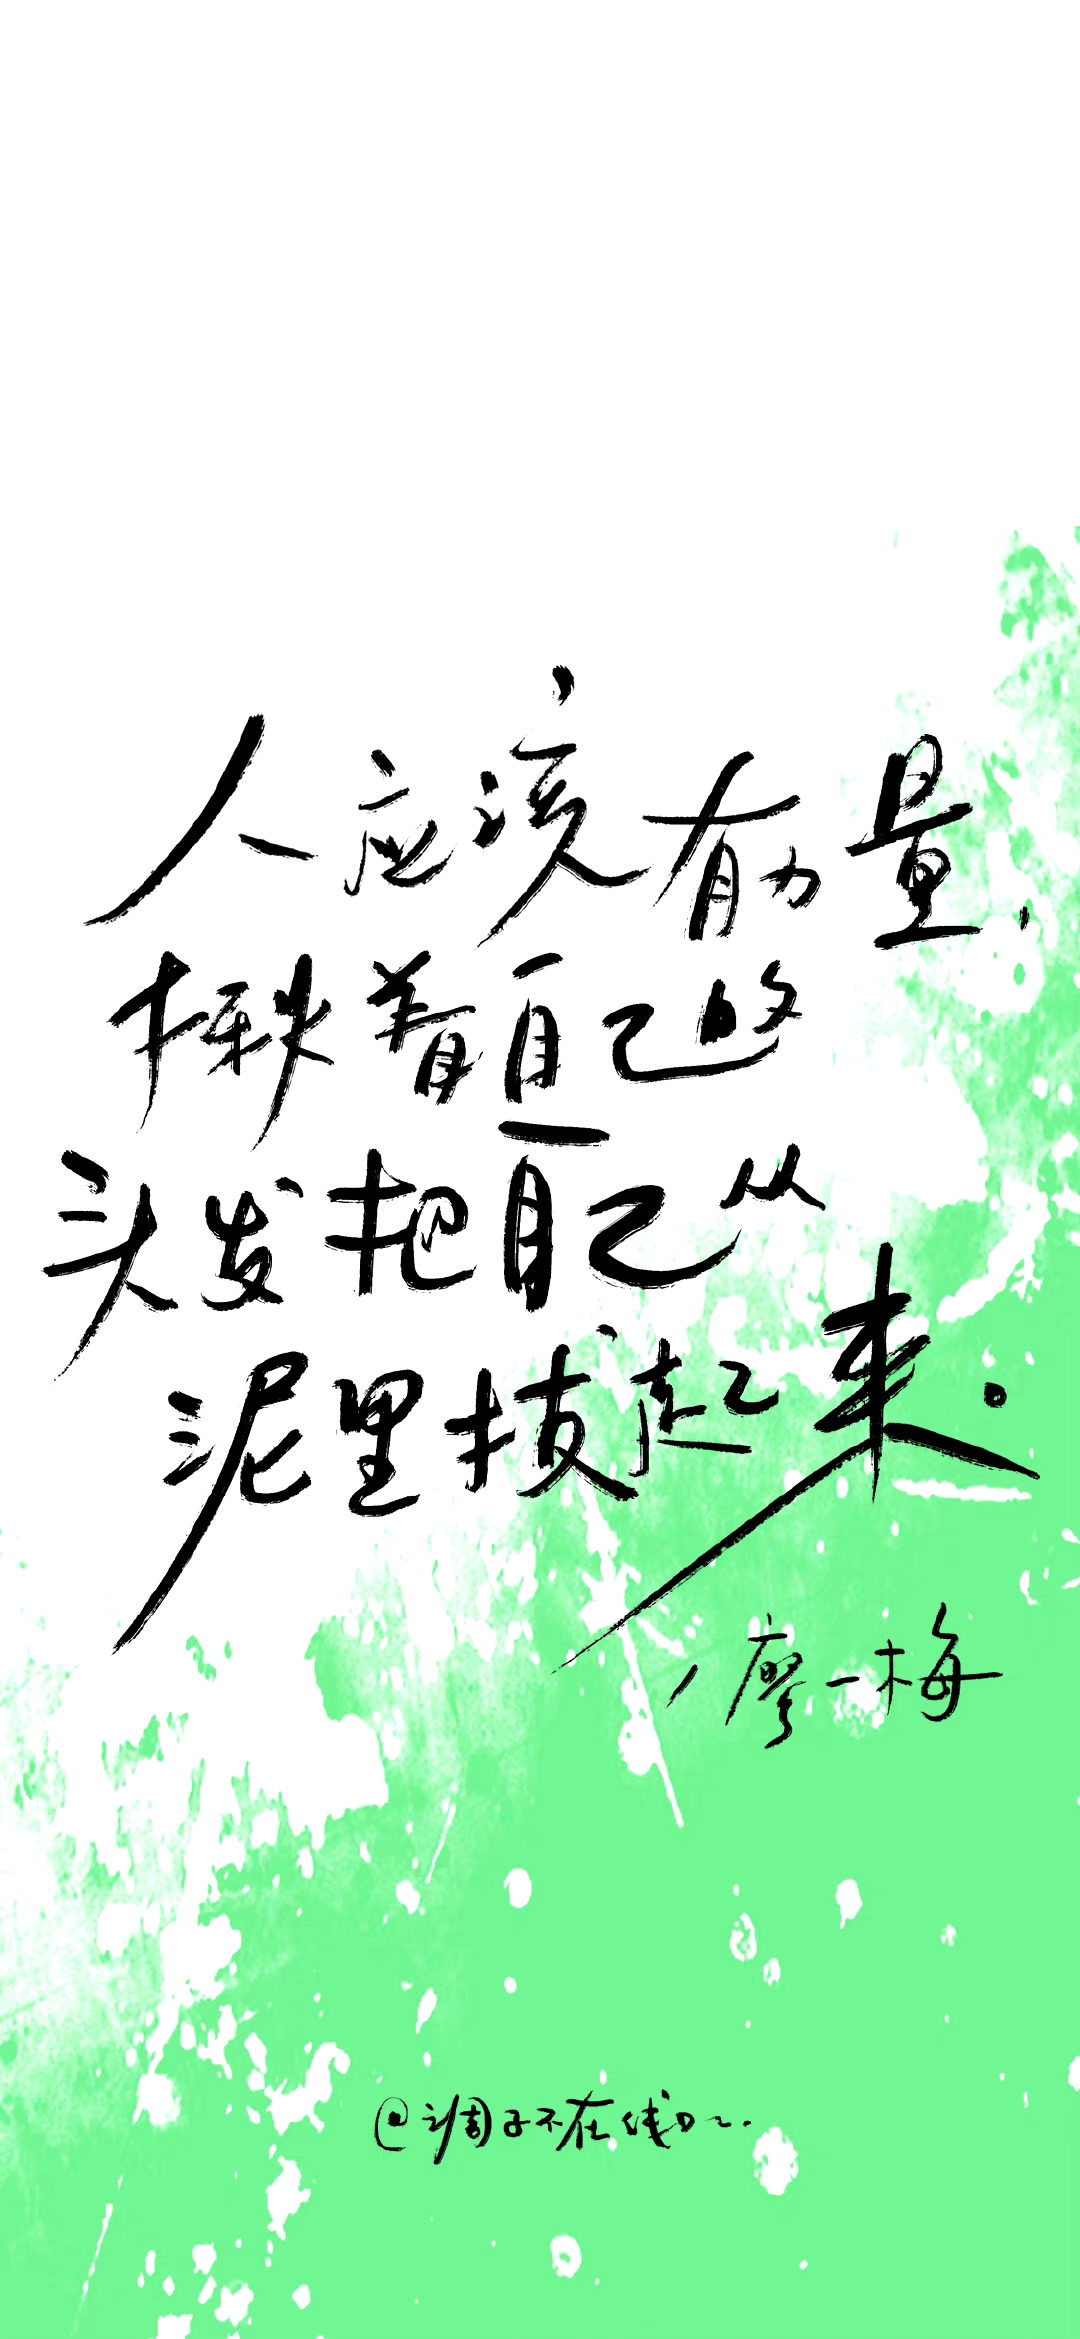 人应该有力量，
揪着自己的
头发把自己从
泥里拔起来。
廖一梅
@调子不在线